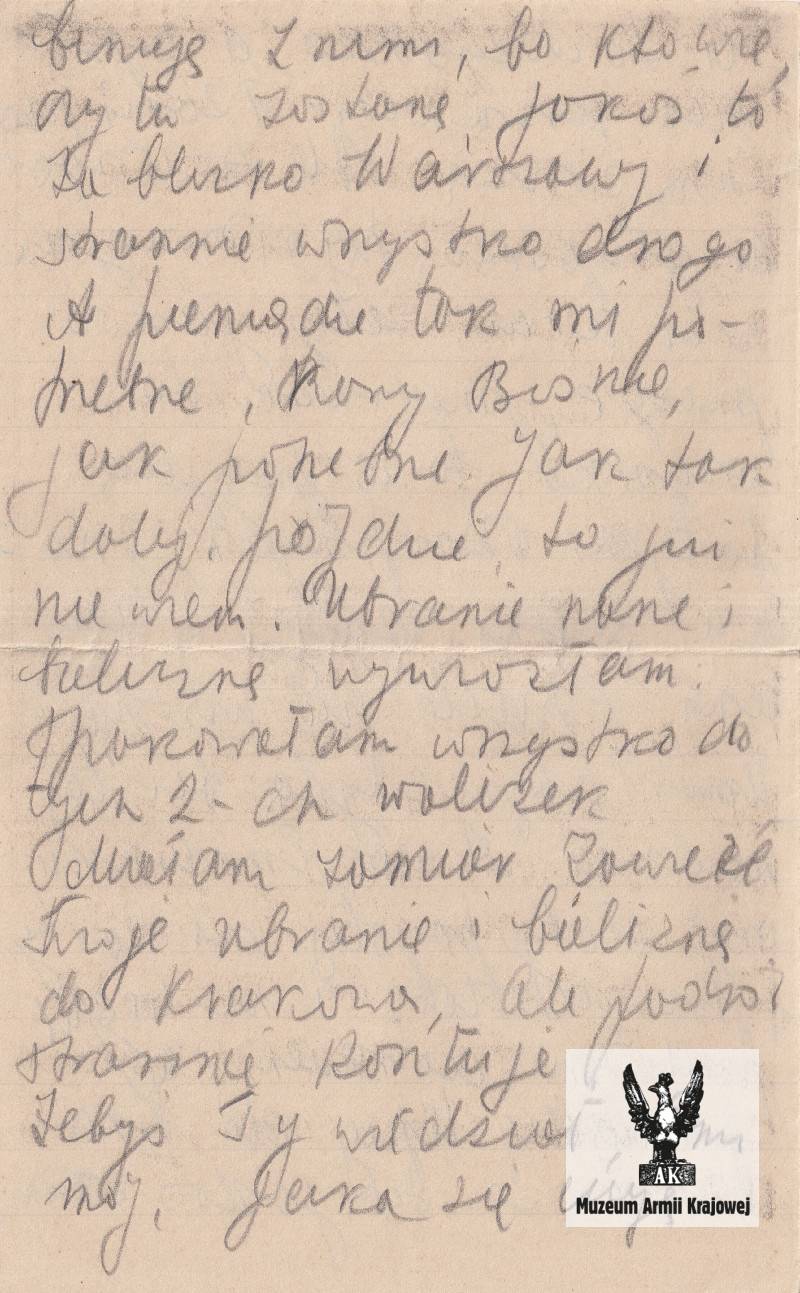 binuję z nimi, bo kto wie,
czy tu zostanę, jakoś to
za blizko Warszawy i
strasznie wszystko drogo
A pieniądze tak mi po-
trzebne, Boziu,
jak potrzebne. Jak tak
dalej pójdzie, to już
nie wiem. Ubranie nasze i
bieliznę wywiozłam.
Spakowałam wszystko do
tych 2-ch walizek
Miałam zamiar zawieźć
Twoje ubranie i bieliznę
do Krakowa, ale podróż
strasznie kosztuje
Żebyś Ty wiedział
mój, jaka się
AK
Muzeum Armii Krajowej